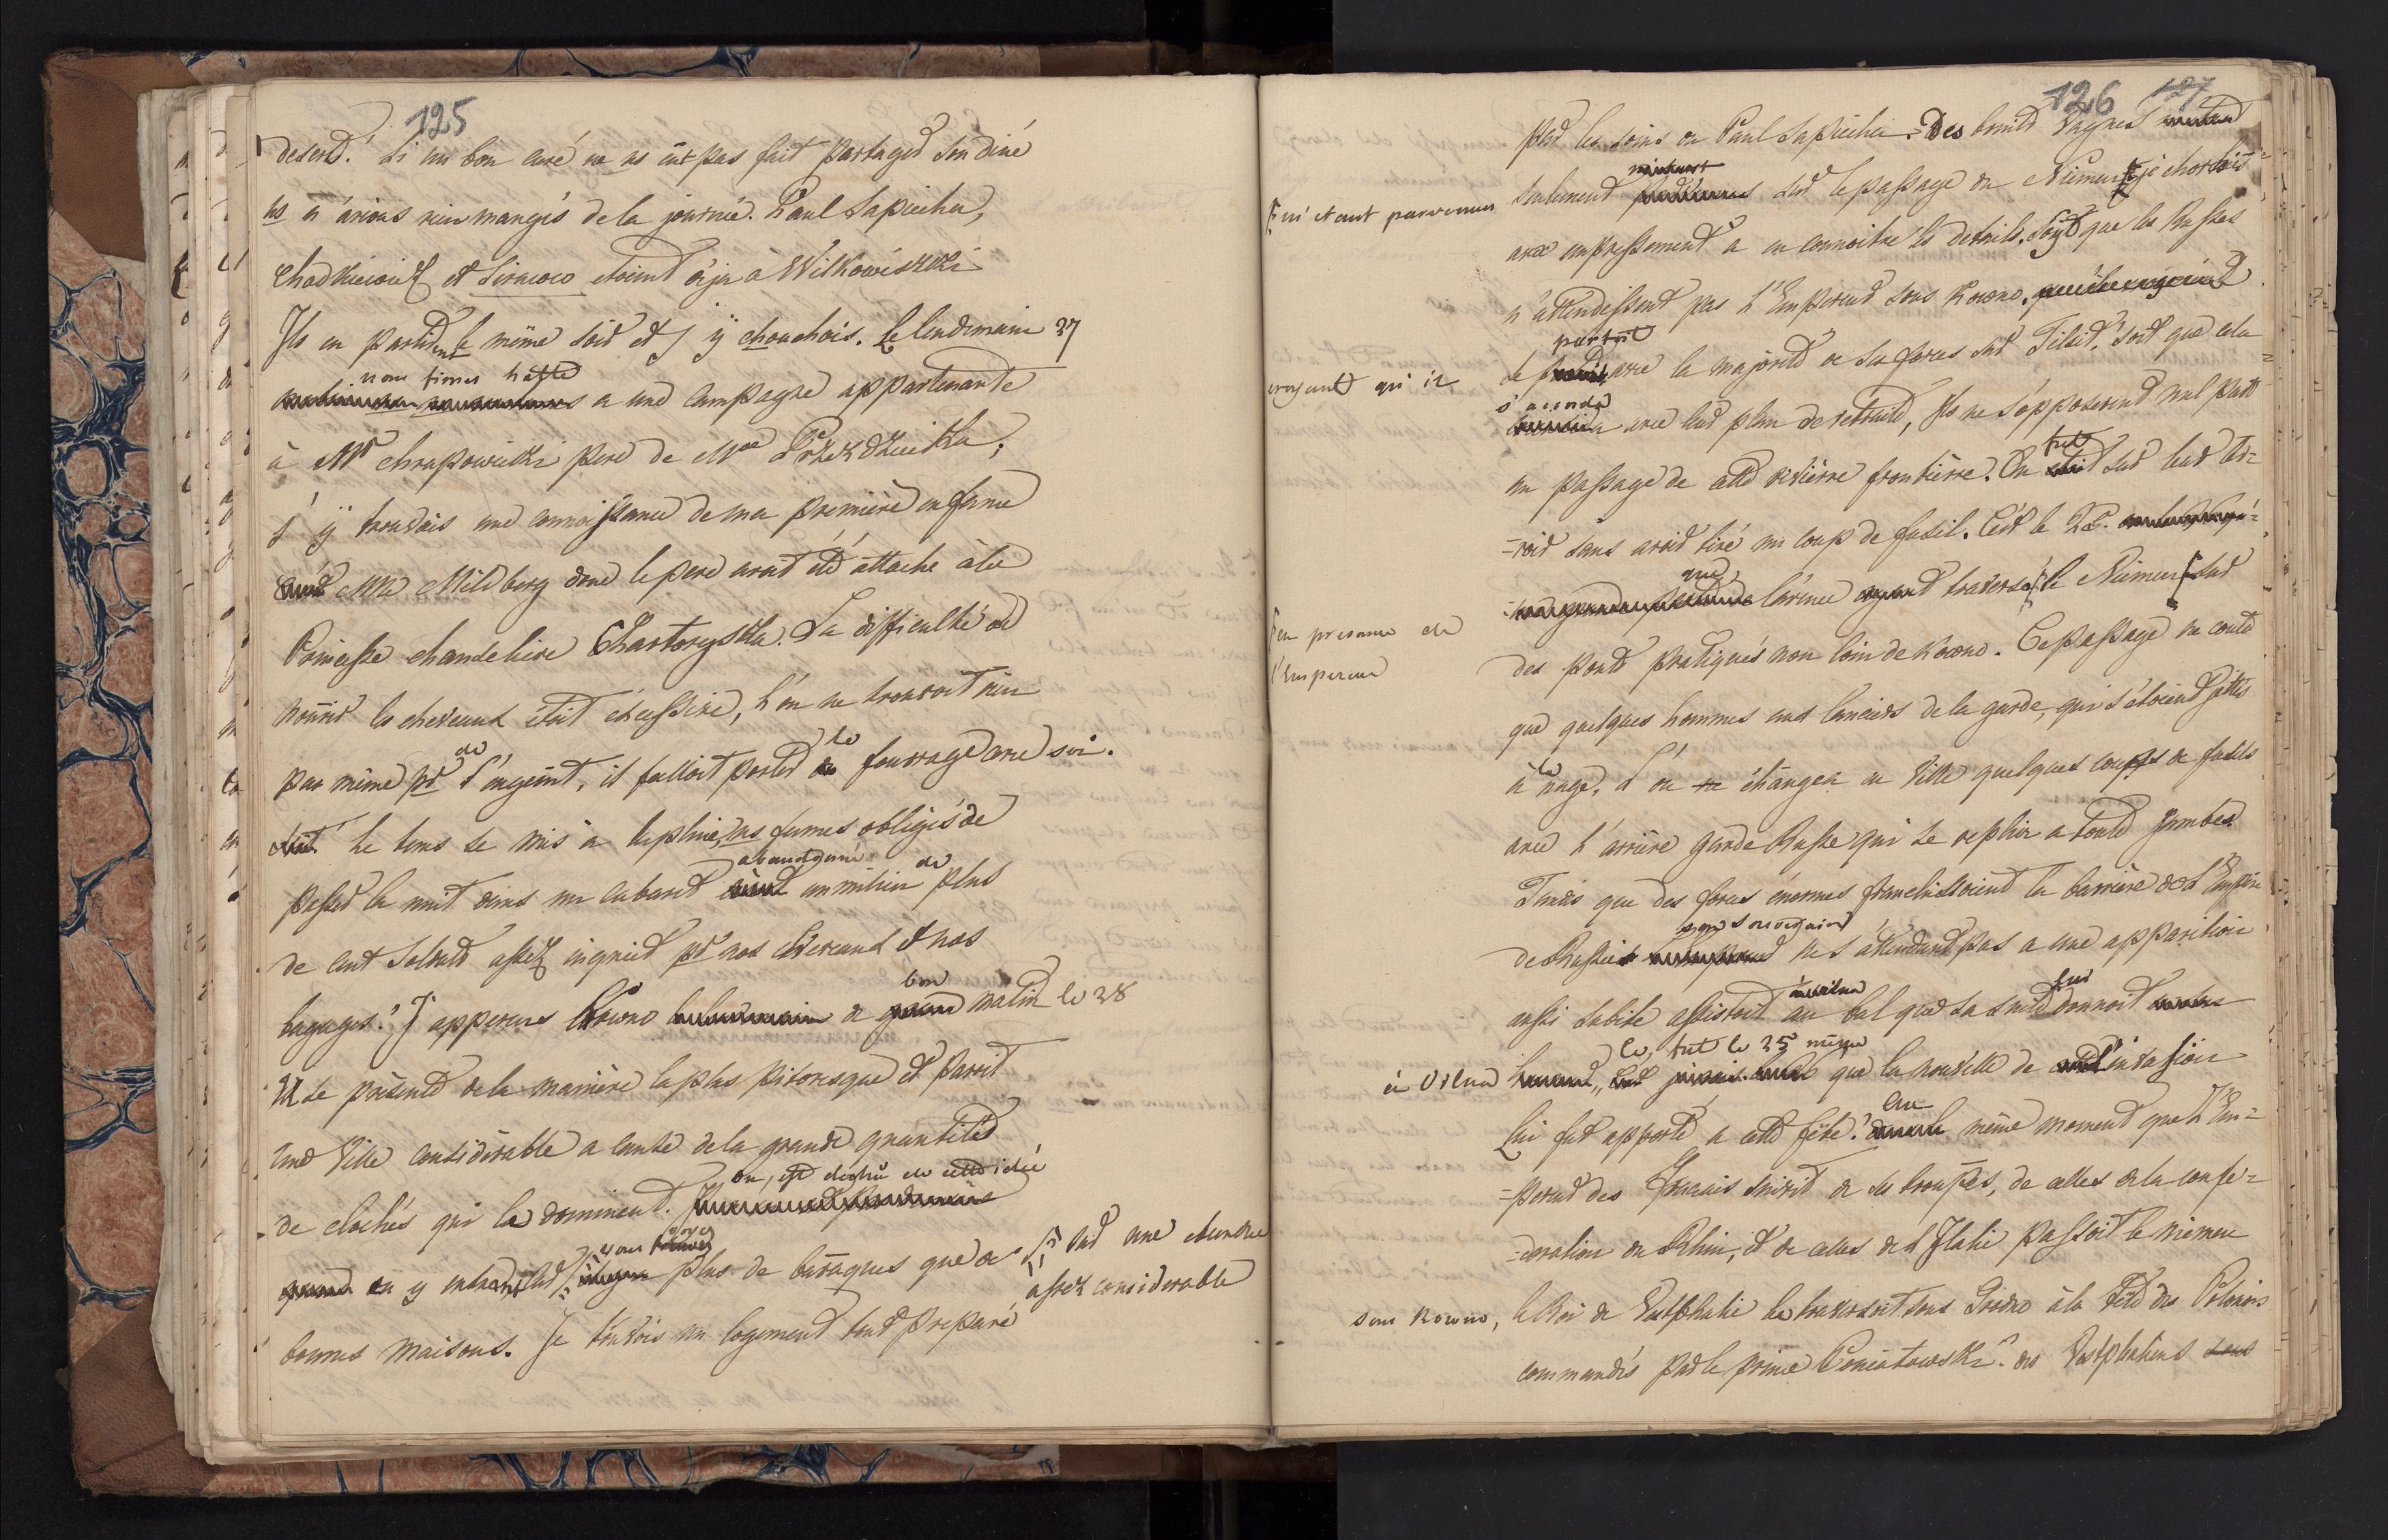 125
desert. Si un bon curé ne ns eut pas fait partager son diné
ns n'avions rien mangés de la journée. Paul Sapieha,
Chodkiewicz et Sierakow etoient deja à Wilkowiszki
Ils en partirent le même soir et j'y chouchois. Le lendemain 27
nous fimes halte
a une campagne appartenante
à Mr Chrapowicki pere de Me Przezdziecka;
j'y trouvois une connoissance de ma première enfance
Me Mildberg dont le pere avoit été attaché à la
Princesse chanceliere Chartoryska. La difficulté de
nourrir les chevaux étoit excessive, l'on ne trouvoit rien
de le
pas même pr d'argent, il falloit porter fourrage avec soi.
Le tems se mis à la pluie, ns fumes obligés de
abandonné de
passer la nuit dans un cabaret au milieu plus
de cent soldats assez inquiet pr nos chevaux et nos
bon
bagages. J'apperçus Kowno de matin le 28
Il se présente de la manière la plus pitoresque et paroit
une Ville considérable a cause de la grande quantité
on, est déchu de cette idée
de clochés qui la dominent.
en y entrant, plus de baraques que de sur une etendue
assez considerable
bonnes maisons. Je trouvois un logement tout preparé
126 127
par les soins de Paul Sapieha. Des bruits vagues
seulement sur le passage du Niemen je cherchois
m'etant parvenus
avec empressement a en connoitre les details. Soit que les Russes
n'attendissent pas l'Empereur sous Kowno,
portoit
croyant qu'il
se avec la majorité de ses forces sur Tilsit, soit que cela
s'accorda
avec leur plan de retraite, Ils ne s'opposerent nul part
fut
au passage de cette rivière frontière. On sur leur ter=
=roir sans avoir tiré un coup de fusil. C'est le 25.
que,
l'armée traversa le Niemen sur
en presence de
l'Empereur
des ponts pratiqués non loin de Kowno. Ce passage ne couta
que quelques hommes aux lanciers de la garde, qui s'étoient jettés
la
à nage. L'on échangea en Ville quelques coups de fusils
avec l'arrière garde Russe qui se replia a toute jambes
Tandis que des forces énormes franchissoient la barrière de l'Empire
son souverain
de Russie ne s'attendant pas a une apparition
à Vilna lui
aussi subite assistoit au bal que sa suite donnoit
ce, fut le 25 même
à Vilna que la nouvelle de l'invasion
au
lui fut apporté a cette fête. même moment que l'Em=
=pereur des Francais suivit de ses troupes, de celles de la confe=
=deration du Rhin, et de celles de l'Italie passoit le niemen
sous Kowno, le Roi de Vestphalie le traversoit sous Grodno à la tête des Polonois
commandés par le prince Poniatowski, des Vestphaliens